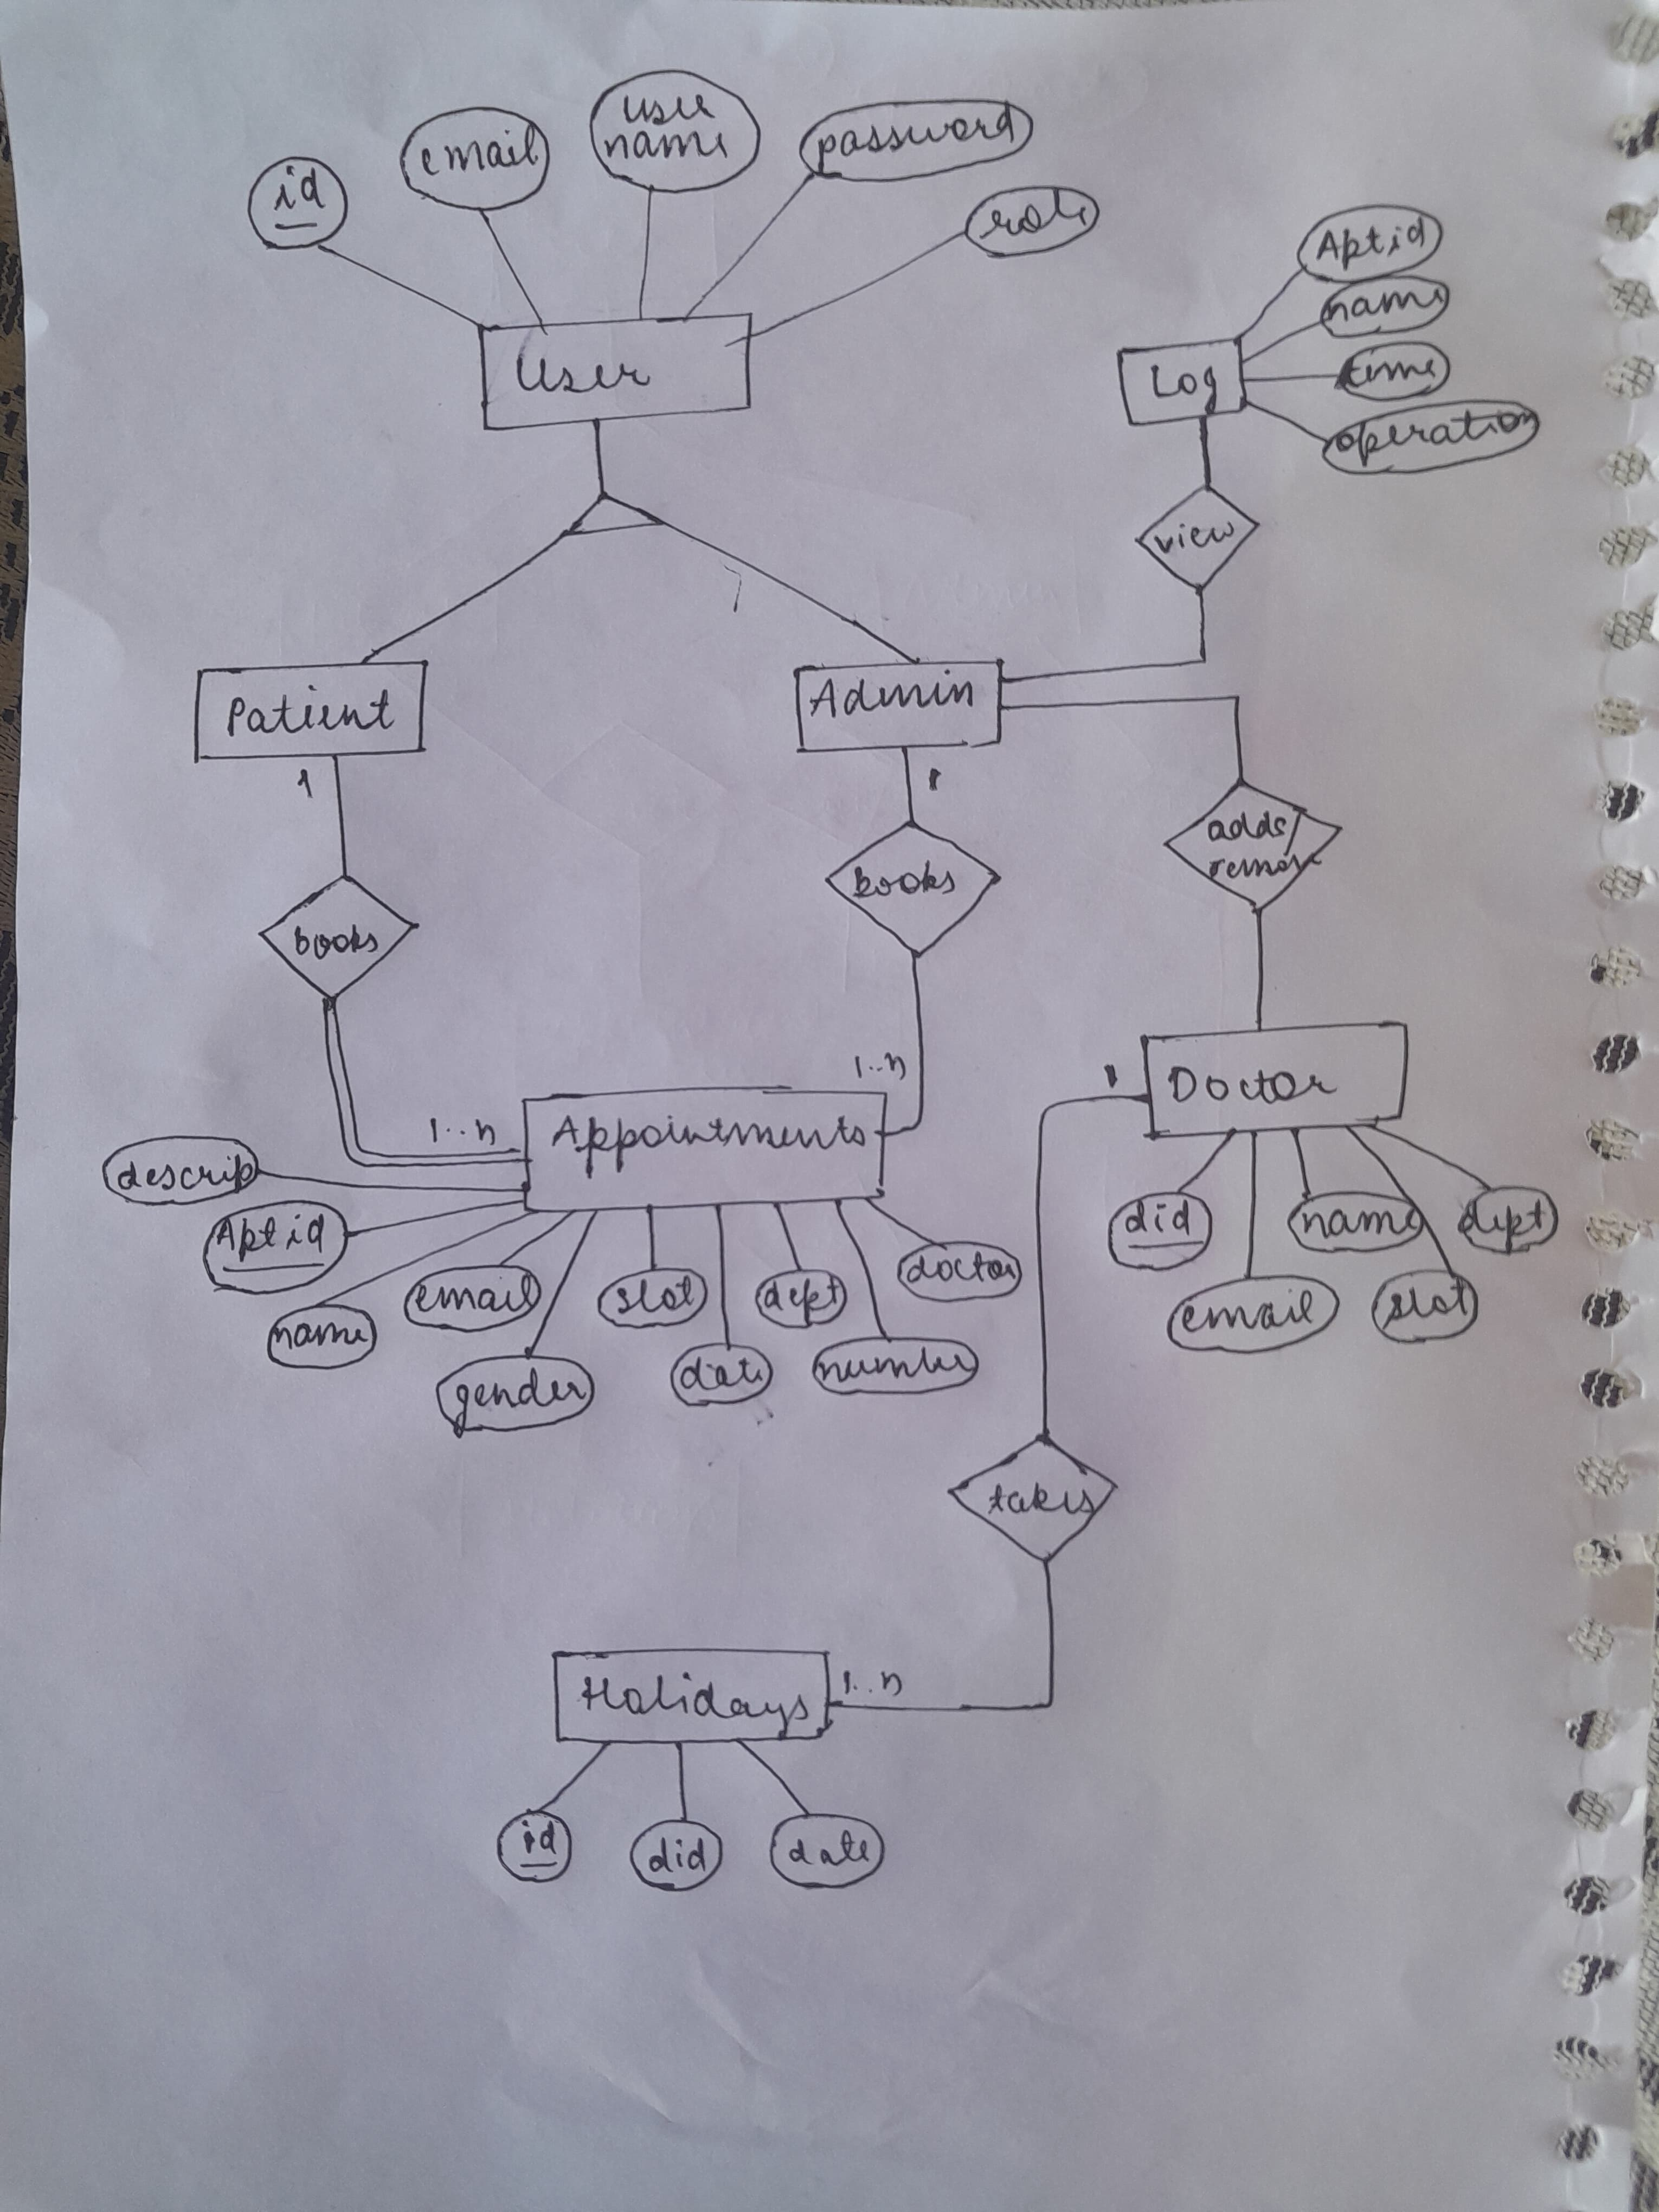 id
email
user
name
password
role
User
Log
Aptid
name
time
operation
view
Patient
Admin
1
1
books
books
adds/
remove
1..n
1..n
Appointments
1
Doctor
descrip
Aptid
name
email
gender
slot
date
dept
number
doctor
did
email
name
slot
dept
takes
Holidays
1..n
id
did
date